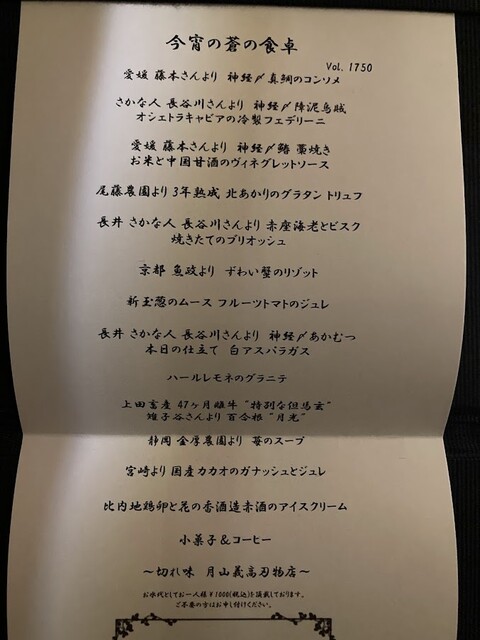 今宵の蒼の食卓
Vol. 1750
愛媛 藤本さんより 神経〆真鯛のコンソメ
さかな人 長谷川さんより 神経〆障泥烏賊
オシェトラキャビアの冷製フェデリーニ
愛媛 藤本さんより 神経〆鰆 藁焼き
お米と中国甘酒のヴィネグレットソース
尾藤農園より 3年熟成 北あかりのグラタン トリュフ
長井 さかな人 長谷川さんより 赤座海老とビスク
焼きたてのブリオッシュ
京都 魚政より ずわい蟹のリゾット
新玉葱のムース フルーツトマトのジュレ
長井 さかな人 長谷川さんより 神経〆あかむつ
本日の仕立て 白アスパラガス
ハールレモネのグラニテ
上田畜産 47ヶ月雌牛 "特別な但馬玄"
雉子谷さんより 百合根 "月光"
静岡 金厚農園より 苺のスープ
宮崎より 国産カカオのガナッシュとジュレ
比内地鶏卵と花の香酒造赤酒のアイスクリーム
小菓子&コーヒー
～切れ味 月山義高刃物店～
お水代としてお一人様¥1000(税込)を頂戴しております。
ご不要の方はお申し付けください。